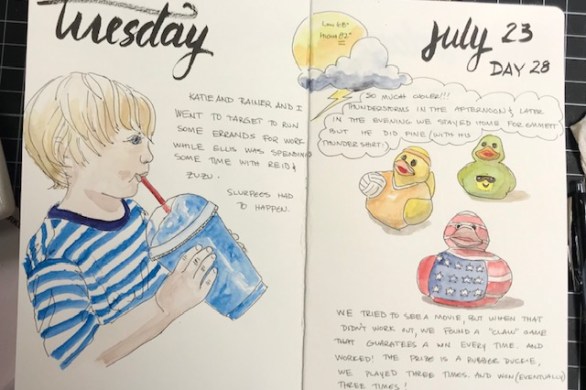 Tuesday
KATIE AND RAINER AND I
WENT TO TARGET TO RUN
SOME ERRANDS FOR WORK
WHILE ELLIS WAS SPENDING
SOME TIME WITH REID &
ZUZU.
SLURPEES HAD
TO HAPPEN.
LOW 68°
HIGH 82°
July 23
DAY 28
SO MUCH COOLER!!!
THUNDERSTORMS IN THE AFTERNOON & LATER
IN THE EVENING WE STAYED HOME FOR EMMETT
BUT HE DID FINE (WITH HIS
THUNDER SHIRT)
WE TRIED TO SEE A MOVIE, BUT WHEN THAT
DIDN'T WORK OUT, WE FOUND A "CLAW" GAME
THAT GUARATEES A WIN EVERY TIME. AND
WORKED! THE PRIZE IS A RUBBER DUCKIE,
WE PLAYED THREE TIMES. AND WIN (EVENTUALLY)
THREE TIMES!